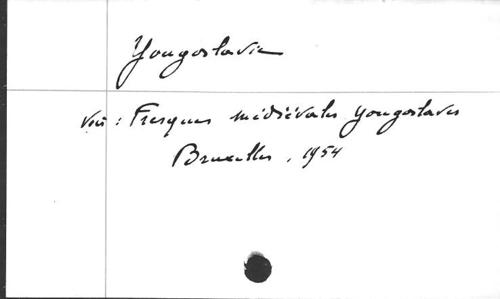 Yougoslavie
Voir : Fresques médiévales yougoslaves
Bruxelles, 1954